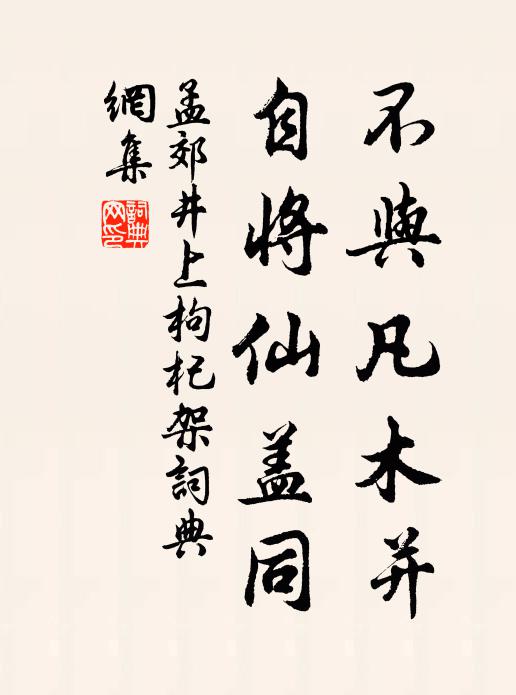 不與凡木并
自將仙盖同
孟郊井上枸杞架詞典
網集
詞典網印